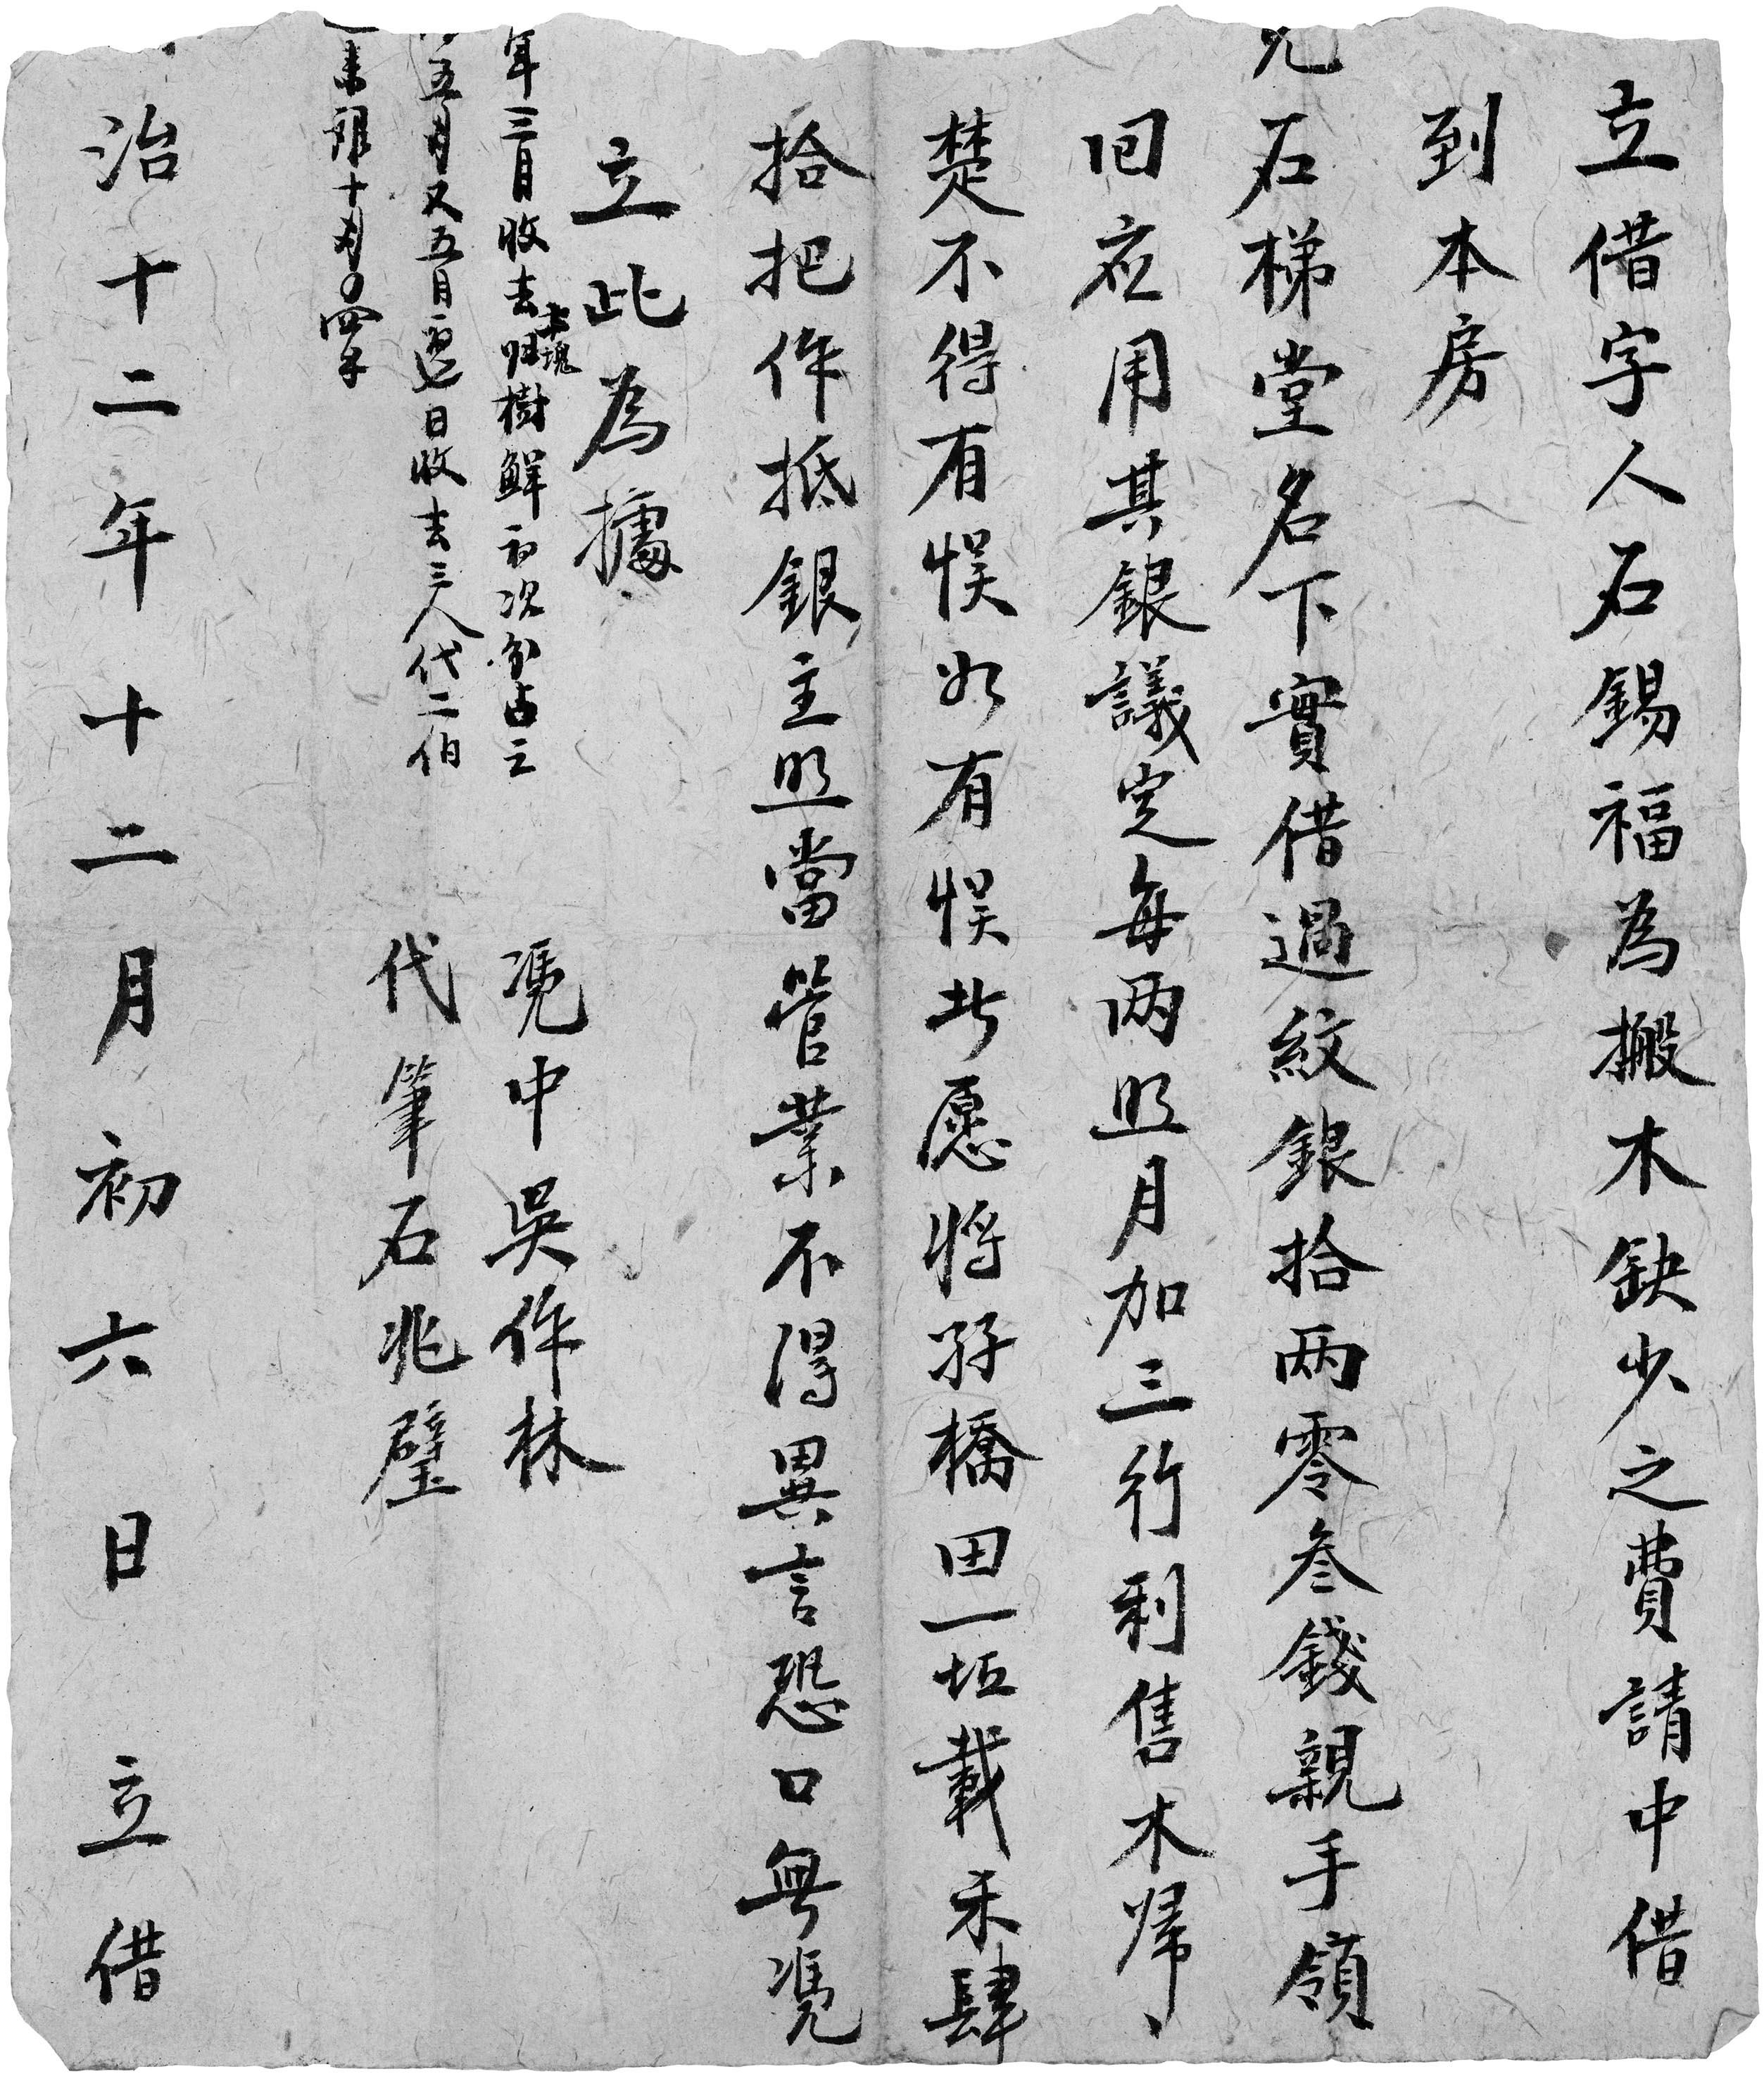 立借字人石錫福為搬木缺少之費請中借
到本房
兄石梯堂名下實借過紋銀拾两零叁錢親手領
回应用其銀議定每两照月加三行利售木歸
楚不得有悮如有悮此愿將孖橋田一坵載禾肆
拾把作抵銀主照當管業不得異言恐口無凴
立此為據
年三月收去归樹鮮初次分占三
五月又五月 日收去三人代二伯
十月 四
凴中吳作林
代筆石兆璧
治十二年十二月初六日立借